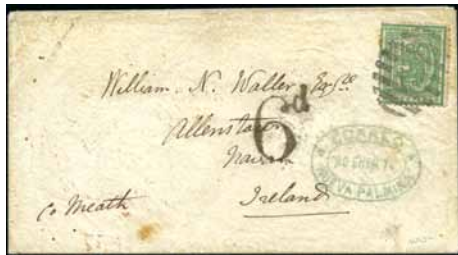 William. N. Waller, Esqre
Allenstown
6d
Navan
Ireland
Co Meath
CORREO
NUEVA PALMIRA